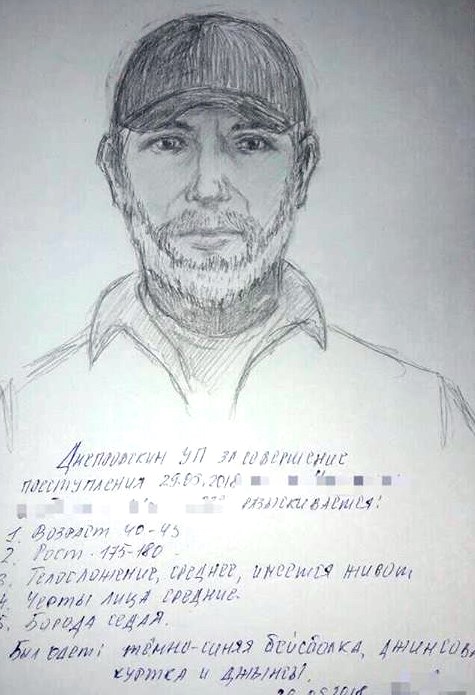 Днепровским УП за совершение
преступления 29.05.2018
разыскивается:
1. Возраст 40-45
2. Рост - 175-180.
3. Телосложение, среднее, имеется живот,
4. Черты лица средние.
5. Борода седая.
Был одет: тёмно-синяя бейсболка, джинсова
куртка и джинсы.